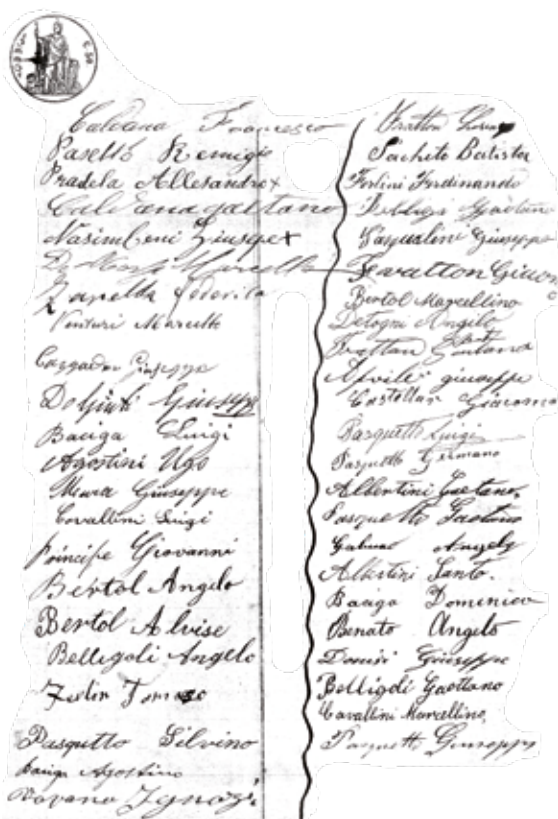 Caldana Francesco
Pasetto Remigio
Pradela Allesandro x
Caldana gaetano
Nasimbeni Giuspe x
Marcello
Zanella federico
Venturi Marcello
Giuseppe
Giuseppe
Baciga Luigi
Agostini Ugo
Mura Giuseppe
Cavallini Luigi
Principe Giovanni
Bertol Angelo
Bertol Alvise
Belligoli Angelo
Tomaso
Pasquetto Silvino
Baciga Agostino
Ignazi
Fratton
Sachito Batista
Ferdinando
Gaetano
Pasqualini Giuseppe
Fevratton
Bertol Marcellino
Detogni Angelo
Frattan
Aprili giuseppe
Castellan Giacomo
Pasquetto Luigi
Pasquetto Germano
Albertini Gaetano.
Pasquetto Gaetano
Angelo
Albertini Santo.
Baciga Dominico
Benato Angelo
Giuseppe
Belligoli Gaettano
Cavallini Marcellino,
Pasquetto Giuseppe